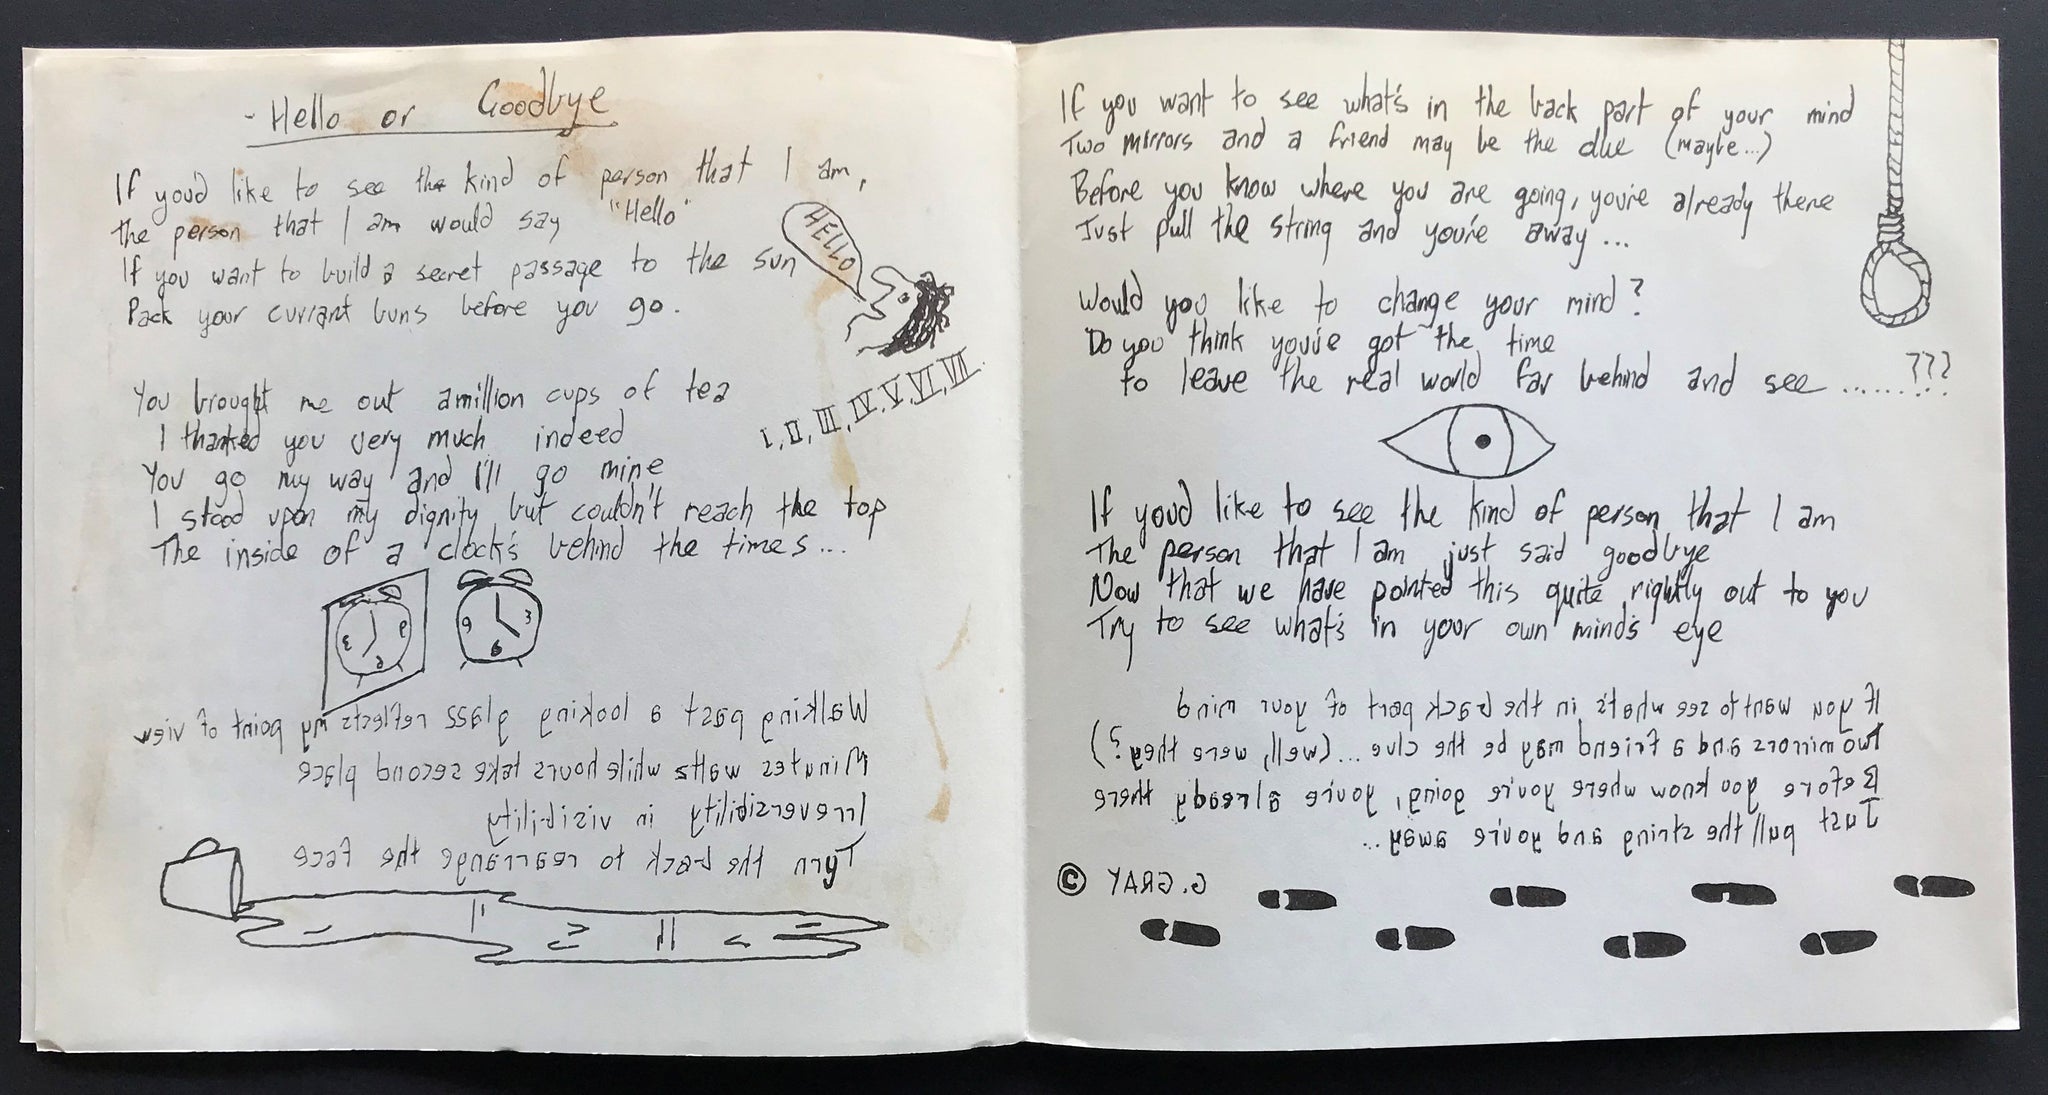 - Hello or Goodbye
If you'd like to see the kind of person that I am,
the person that I am would say "Hello"
If you want to build a secret passage to the sun
Pack your currant buns before you go.
HELLO
I, II, III, IV, V, VI, VII.
You brought me out a million cups of tea
I thanked you very much indeed
You go my way and I'll go mine
I stood upon my dignity but couldn't reach the top
The inside of a clock's behind the times...
3 9 6
9 3 6
Walking past a looking glass reflects my point of view
Minutes waltz while hours take second place
Irreversibility in visibility
Turn the back to rearrange the face
If you want to see what's in the back part of your mind
Two mirrors and a friend may be the clue (maybe...)
Before you know where you are going, you're already there
Just pull the string and you're away...
Would you like to change your mind?
Do you think you've got the time
to leave the real world far behind and see ......???
If you'd like to see the kind of person that I am
The person that I am just said goodbye
Now that we have pointed this quite rightly out to you
Try to see what's in your own mind's eye
If you want to see what's in the back part of your mind
Two mirrors and a friend may be the clue ... (well, were they?)
Before you know where you're going, you're already there
Just pull the string and you're away...
© G. GRAY